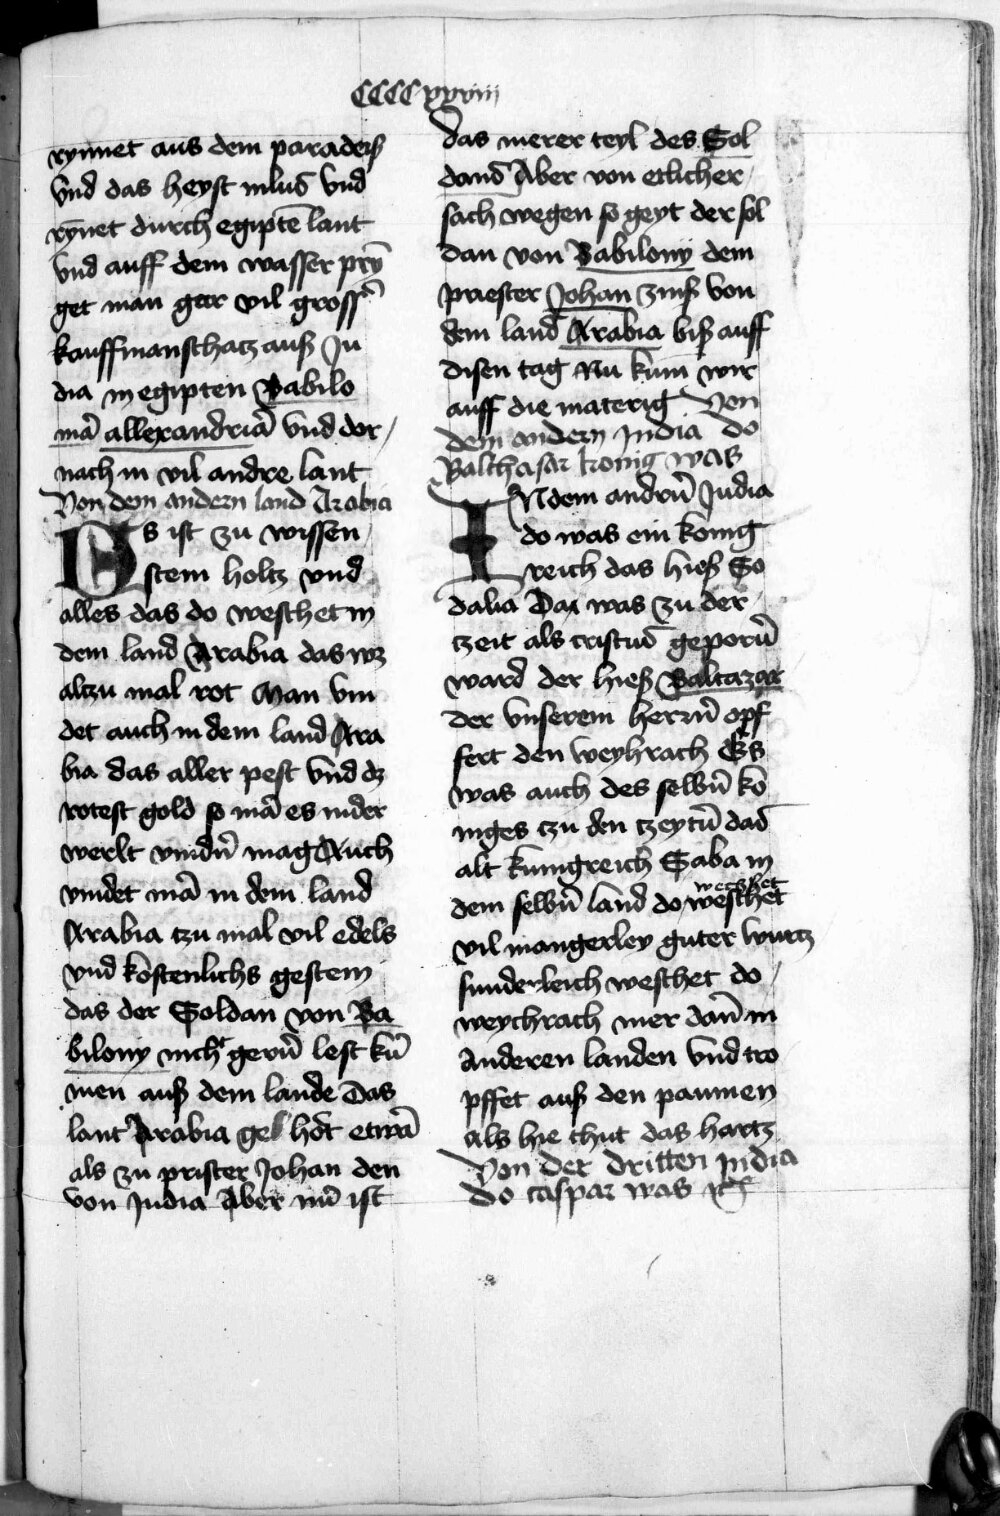 CCCCxxxviii
rynnet aus dem paradeiß
vnd das heyst nilus vnd
rȳnet durch egiptē lant
vnd auff dem wasser prȳ
get man gar vil grosser
kauffmanschatz auß In
dia in egipten Babilo
niā allexandriā vnd dor
nach in vil andre lant
Von dem andern land Arabia
Es ist zu wissen
stein holtz vnd
alles das do weschet in
dem land Arabia das wz
altzu mal rot Man vin
det auch in dem land Ara
bia das aller pest vnd dz
rotest gold so mā es in der
werlt vindn̄ mag Auch
vindet mā in dem land
Arabia tzu mal vil edels
vnd kostenlichs gestein
das der Soldan von Ba
bilony nicht gerū lest kū
men auß dem lande Das
lant Arabia gehōrt etwā
als zu prister Johan den
von India Aber nū ist
das merer teyl des Sol
dans Aber von etlicher
sach wegen so geyt der sol
dan von Babilony dem
priester Johan zinß von
dem land Arabia biß auff
disen tag Nu kum wir
auff die materig Von
dem andern India do
Balthasar konig was
INdem andrn̄ India
do was ein konig
reich das hieß Go
dalia Dar was zu der
tzeit als cristus geporn̄
ward der hieß Baltazar
der vnserem herrn̄ opf
fert den weyhrach Es
was auch des selbn̄ ko
niges tzu den tzeytn̄ das
alt kunigreich Saba in
dem selbn̄ land do weschet
weschet
vil mangerley guter wurtz
sunderleich weschet do
weychrach mer dan̄ in
anderen landen vnd tro
pffet auß den paumen
als hie thut das hartz
Von der dritten India
do caspar was